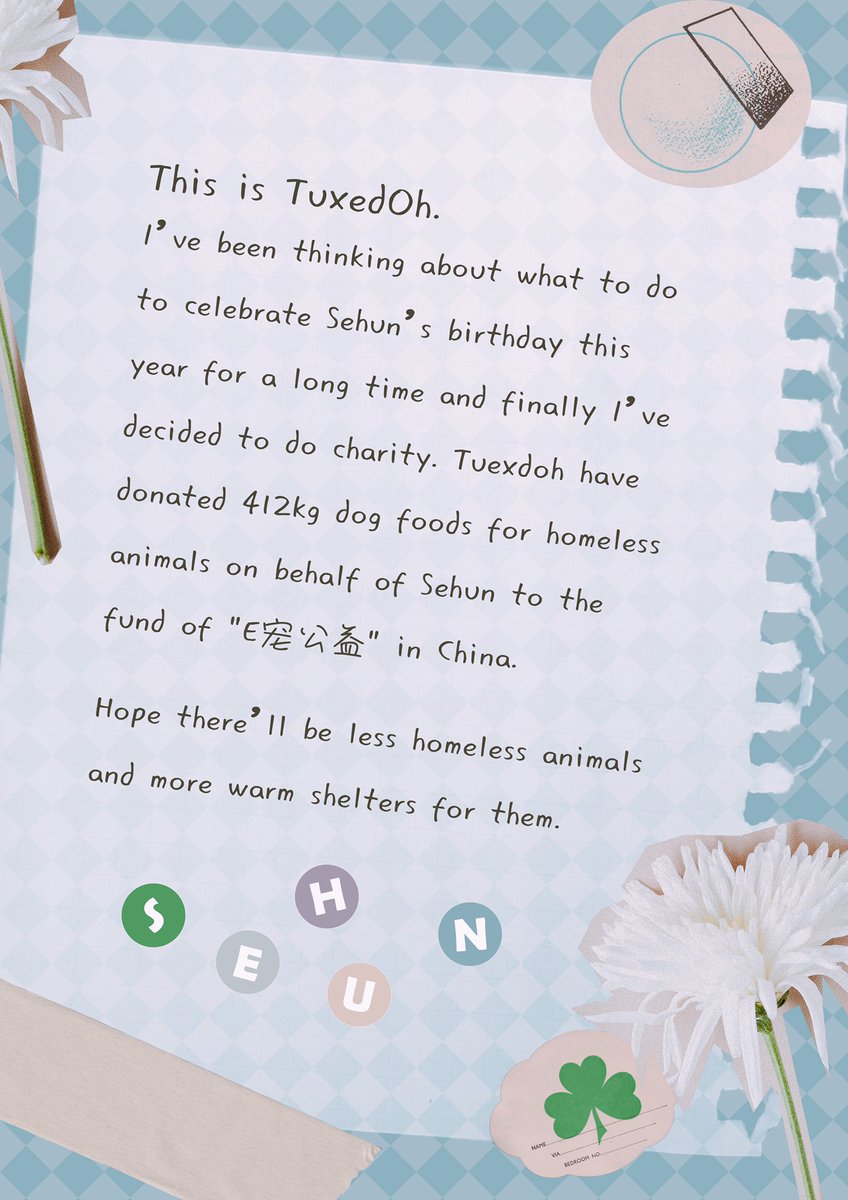 This is TuxedOh.
I've been thinking about what to do
to celebrate Sehun's birthday this
year for a long time and finally I've
decided to do charity. Tuexdoh have
donated 412kg dog foods for homeless
animals on behalf of Sehun to the
fund of "E宠公益" in China.
Hope there'll be less homeless animals
and more warm shelters for them.
S E H U N
NAME
VIA
BEDROOM NO.